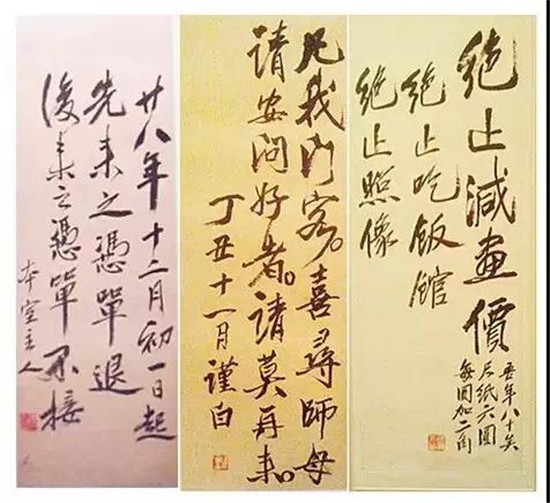 絶止減畫價
絶止吃飯館
絶止照像
吾年八十矣
尺紙六圓
每圓加二角
凡我門客。喜尋師母
請安問好者。請莫再来。
丁丑十一月謹白
廿八年十二月初一日起
先来之憑單退
後来之憑單不接
本室主人